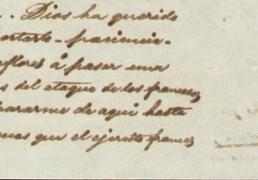 .. Dios ha querido
portarlo - paciencia -
flores á pasar una
s del ataque de los franceses
pararme de aqui hasta
mas que el ejército frances